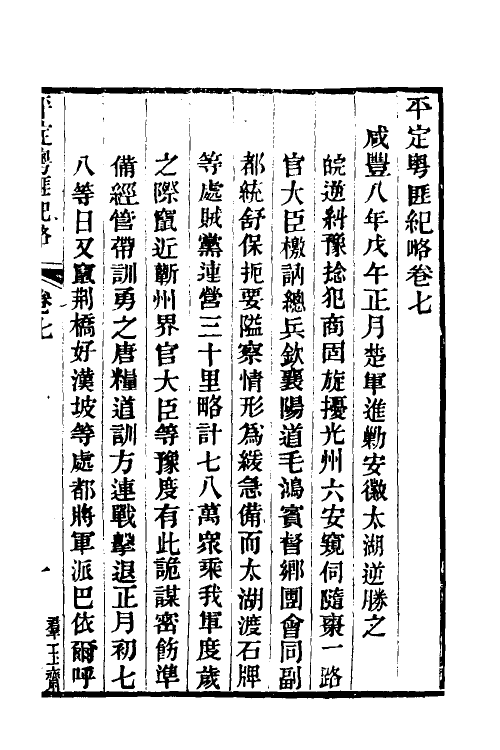 平定粵匪紀略卷七
咸豐八年戊午正月楚軍進勦安徽太湖逆勝之
皖逆糾豫捻犯商固旋擾光州六安窺伺隨棗一路
官大臣檄訥總兵欽襄陽道毛鴻賓督鄉團會同副
都統舒保扼要隘察情形為緩急備而太湖渡石牌
等處賊黨連營三十里略計七八萬衆乘我軍度歲
之際竄近蘄州界官大臣等豫度有此詭謀密飭準
備經管帶訓勇之唐糧道訓方連戰擊退正月初七
八等日又竄荆橋好漢坡等處都將軍派巴依爾呼
平定粵匪紀略
卷七
一
羣玉齋